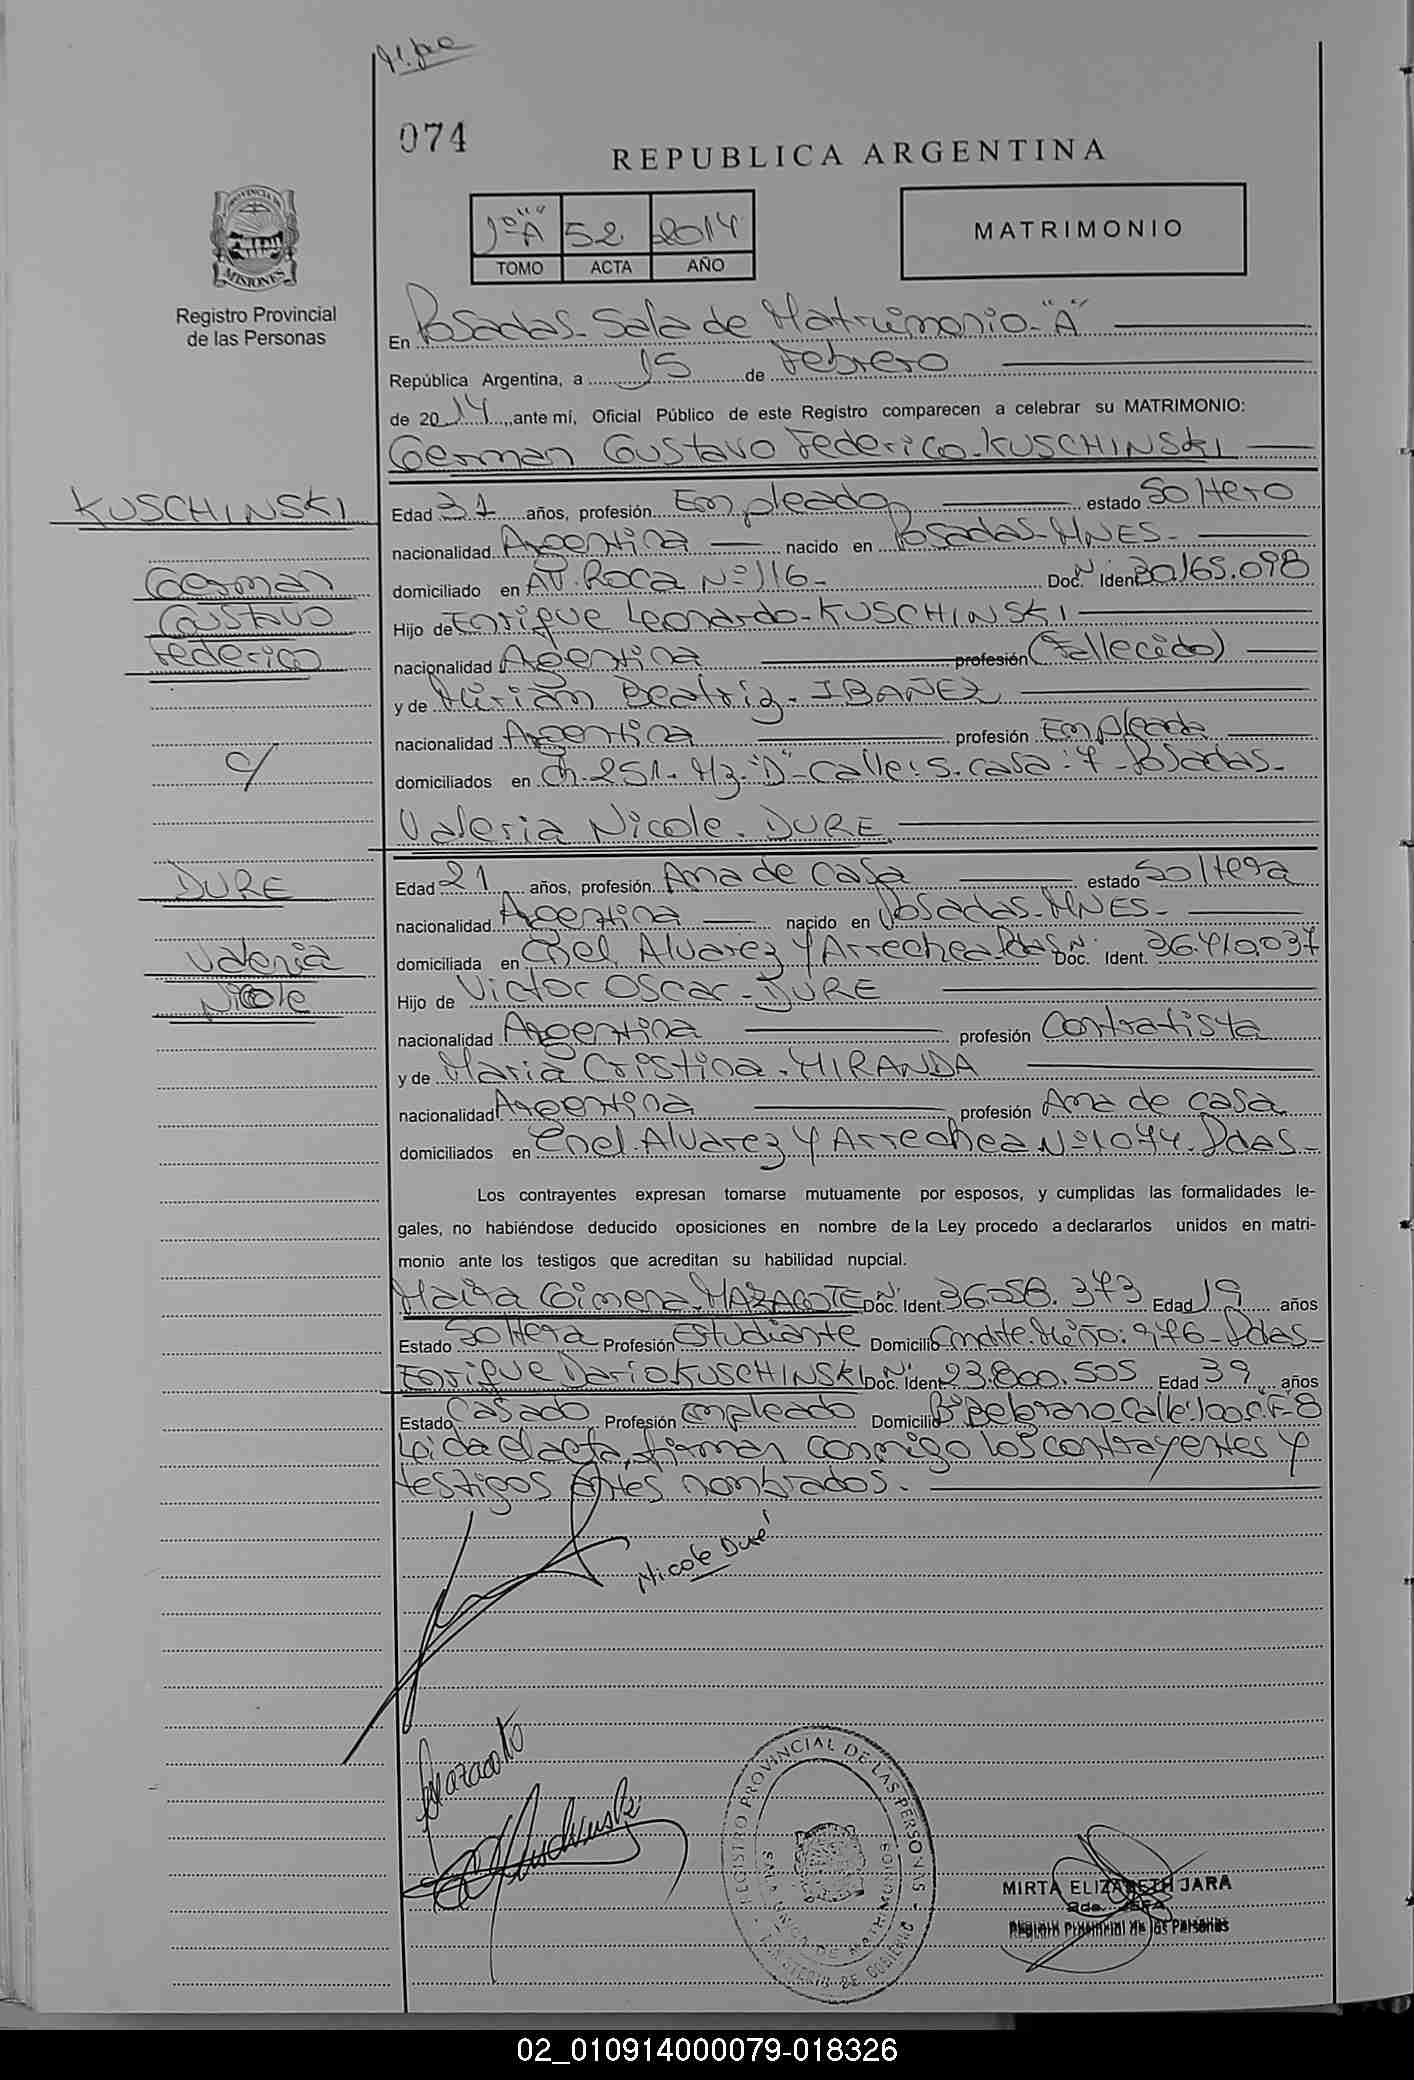 074
REPUBLICA ARGENTINA
PROVINCIA DE
MISIONES
Registro Provincial
de las Personas
1º "A" 52 2014
TOMO ACTA AÑO
MATRIMONIO
En Posadas-Sala de Matrimonio-"A"
República Argentina, a 15 de Febrero
de 2014, ante mí, Oficial Público de este Registro comparecen a celebrar su MATRIMONIO:
German Gustavo Federico-KUSCHINSKI
KUSCHINSKI
German
Gustavo
Federico
c/
DURE
Valeria
Nicole
Edad 31 años, profesión Empleado estado Soltero
nacionalidad Argentina nacido en Posadas-MNES-
domiciliado en AV. Roca Nº 116- Doc. Nº Ident. 30.165.098
Hijo de Enrique Leonardo-KUSCHINSKI
nacionalidad Argentina profesión (Fallecido)
y de Mirian Beatriz-IBAÑEZ
nacionalidad Argentina profesión Empleada
domiciliados en Ch-251-Mz-"D"-Calle:S.casa:7-Posadas-
Valeria Nicole-DURE
Edad 21 años, profesión Ama de casa estado Soltera
nacionalidad Argentina nacido en Posadas-MNES-
domiciliada en Cnel. Alvarez y Arrechea-Pdas Nº Doc. Ident. 36.410.037
Hijo de Victor Oscar-DURE
nacionalidad Argentina profesión Contratista
y de Maria Cristina-MIRANDA
nacionalidad Argentina profesión Ama de casa
domiciliados en Cnel. Alvarez y Arrechea Nº 1074-Pdas-
Los contrayentes expresan tomarse mutuamente por esposos, y cumplidas las formalidades le-
gales, no habiéndose deducido oposiciones en nombre de la Ley procedo a declararlos unidos en matri-
monio ante los testigos que acreditan su habilidad nupcial.
Gimena-MAZACOTE Nº Doc. Ident. 36.058.373 Edad 19 años
Estado Soltera Profesión Estudiante Domicilio Cmdte. Miño. 976-Pdas-
Enrique Dario KUSCHINSKI Nº Doc. Ident. 23.800.505 Edad 39 años
Estado Casado Profesión empleado Domicilio Bº Belgrano Calle:100 C.F-8
Leida el acta, firman conmigo los contrayentes y
testigos antes nombrados.
Nicole Duré
REGISTRO PROVINCIAL DE LAS PERSONAS
SALA UNICA DE MATRIMONIOS
MINISTERIO DE GOBIERNO
MIRTA ELIZABETH JARA
Registro Provincial de las Personas
02_010914000079-018326